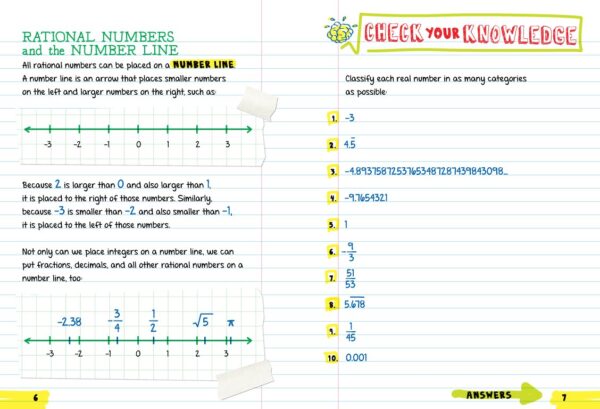 RATIONAL NUMBERS
and the NUMBER LINE
All rational numbers can be placed on a NUMBER LINE.
A number line is an arrow that places smaller numbers
on the left and larger numbers on the right, such as:
-3 -2 -1 0 1 2 3
Because 2 is larger than 0 and also larger than 1,
it is placed to the right of those numbers. Similarly,
because -3 is smaller than -2 and also smaller than -1,
it is placed to the left of those numbers.
Not only can we place integers on a number line, we can
put fractions, decimals, and all other rational numbers on a
number line, too:
-2.38 -3/4 1/2 √5 π
-3 -2 -1 0 1 2 3
6
CHECK YOUR KNOWLEDGE
Classify each real number in as many categories
as possible:
1. -3
2. 4.5̅
3. -4.8937587253765348728743984 3098...
4. -9.7654321
5. 1
6. -9/3
7. 51/53
8. 5.6̅7̅8̅
9. 1/45
10. 0.001
ANSWERS 7